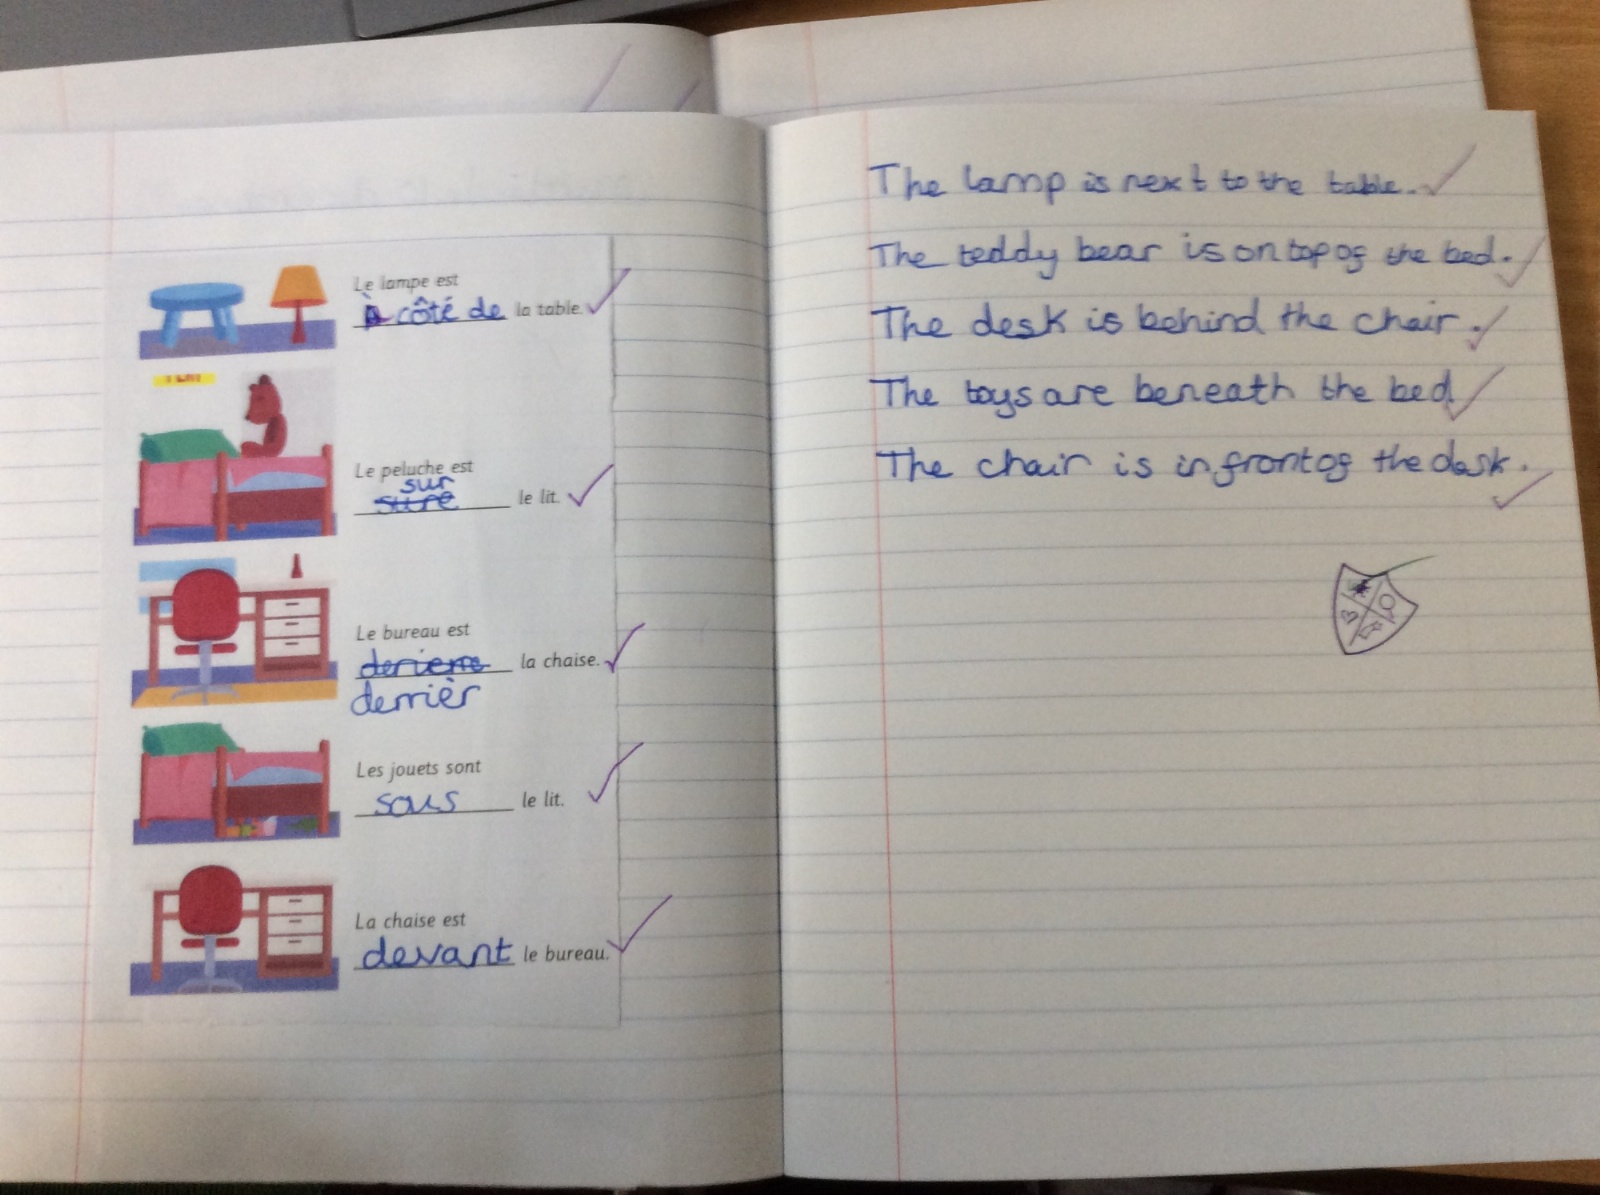 Le lampe est
à côté de la table.
Le peluche est
sur
sure le lit.
Le bureau est
derierre la chaise.
derrièr
Les jouets sont
sous le lit.
La chaise est
devant le bureau.
The lamp is next to the table.
The teddy bear is on top of the bed.
The desk is behind the chair.
The toys are beneath the bed
The chair is in front of the desk.